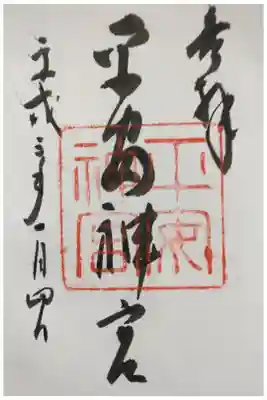 奉拝
平安神宮
平成三年一月四日
平安
神宮